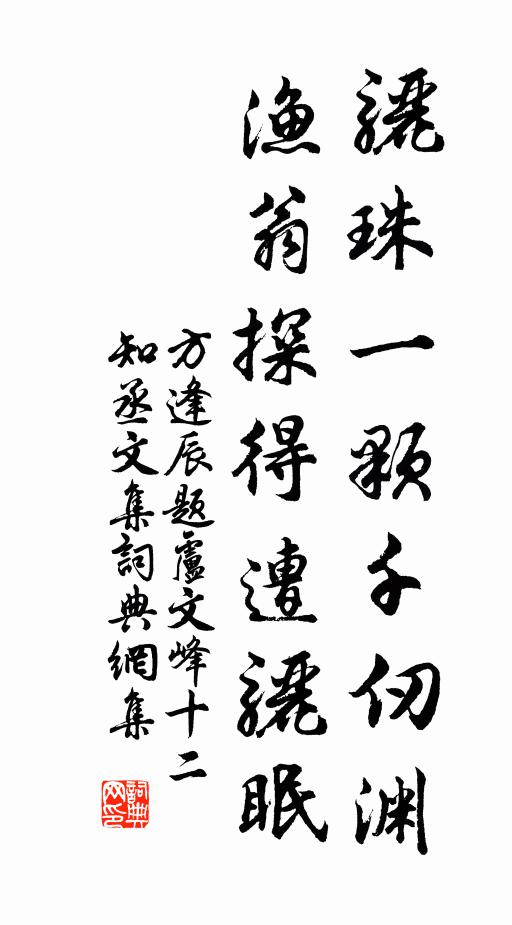 驪珠一顆千仞淵
漁翁探得遭驪眠
方逢辰題盧文峰十二
知丞文集詞典網集
詞典网印